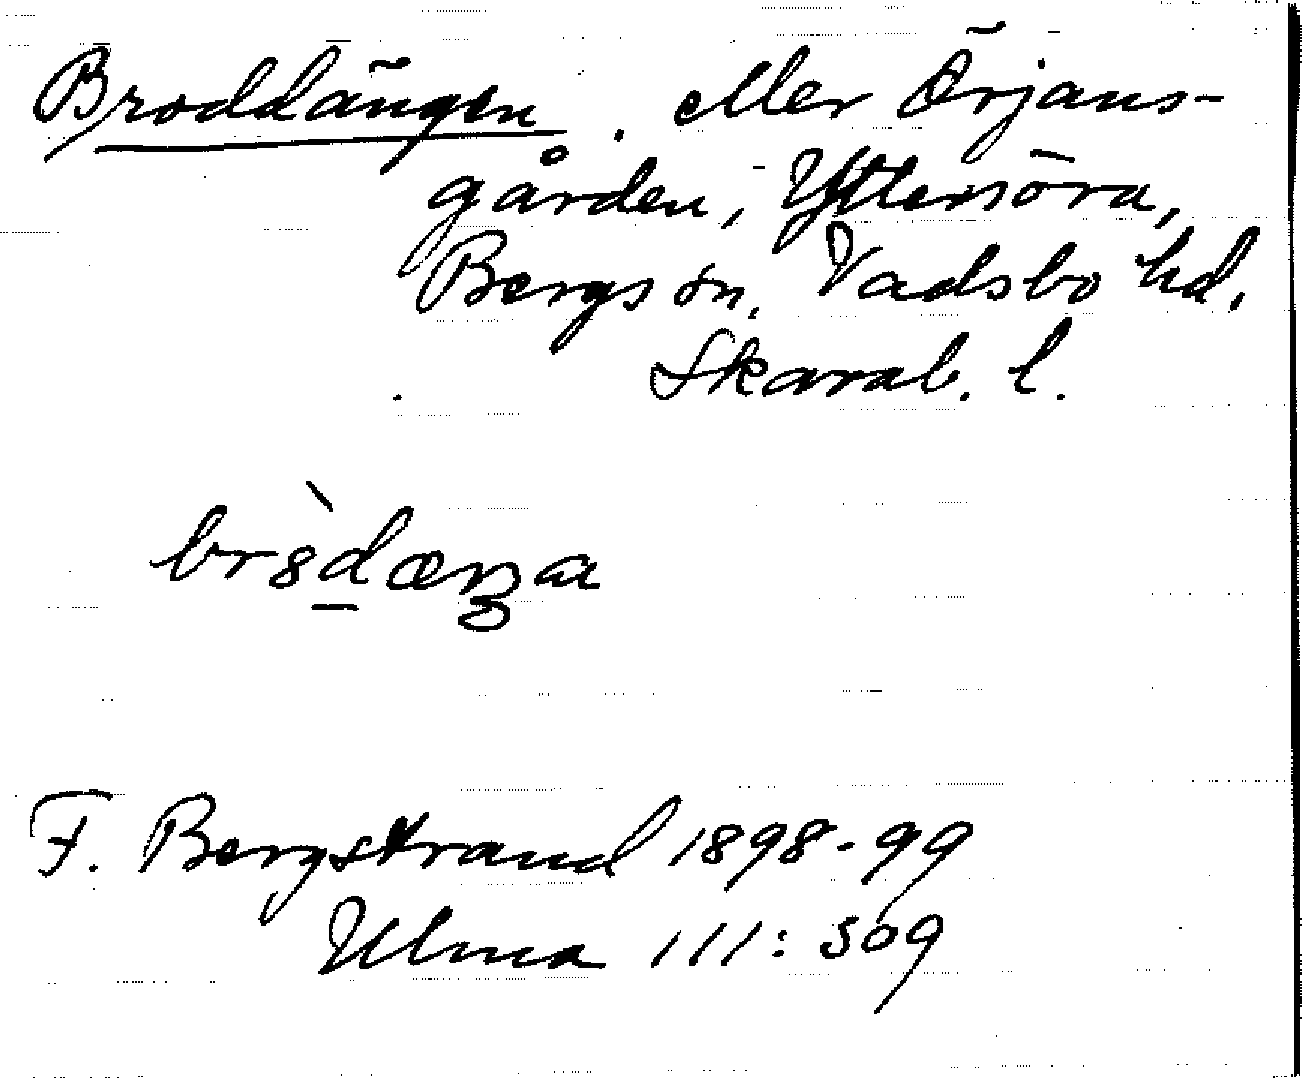 Broddängen. eller Örjans-
gården, Yttersöra,
Bergs sn, Vadsbo hd,
Skarab. l.
br8̀d̲æŋa
F. Bergstrand 1898-99
Ulma 111: 509